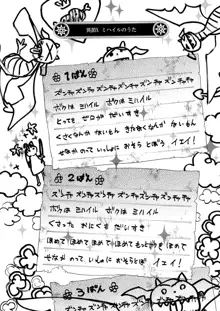 挑戦! ミハイルのうた
1ばん
ズンチャ ズンチャ ズンチャ ズンチャ ズンチャチャ
ボクは ミハイル ボクは ミハイル
とっても ゼツリン
くさくなんか ないもん きたなくなんか ないもん
せなかの って いっしょに おそら とぼう イエイ!
2ばん
ズンチャ ズンチャ ズンチャ ズンチャ ズンチャチャ
ボクは ミハイル ボクは ミハイル
くさった おにくも だいすき
ほめて ほめて ほめて もっと ほめて
せなかの って いっしょに おそら とぼう イエイ!
3ばん
ズンチャ ズンチャ ズンチャ ズンチャ ズンチャチャ